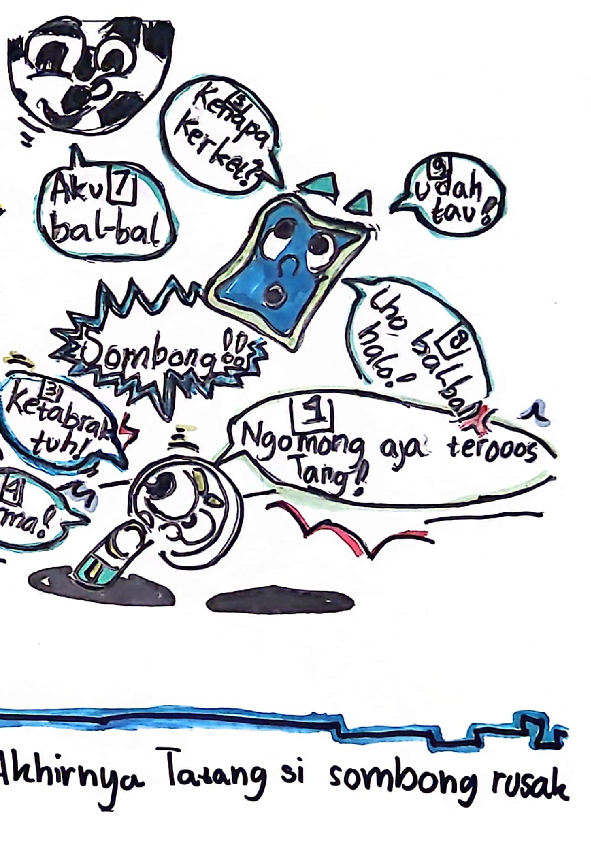 Kenapa
9
udah
tau!
Aku 7
bal-bal
8
Lho, bal-bal
halo!
Sombong!!!
3
Ketabrak
tuh!
1
Ngomong aja terooos
Tang!
4
ma!
Akhirnya Tatang si sombong rusak